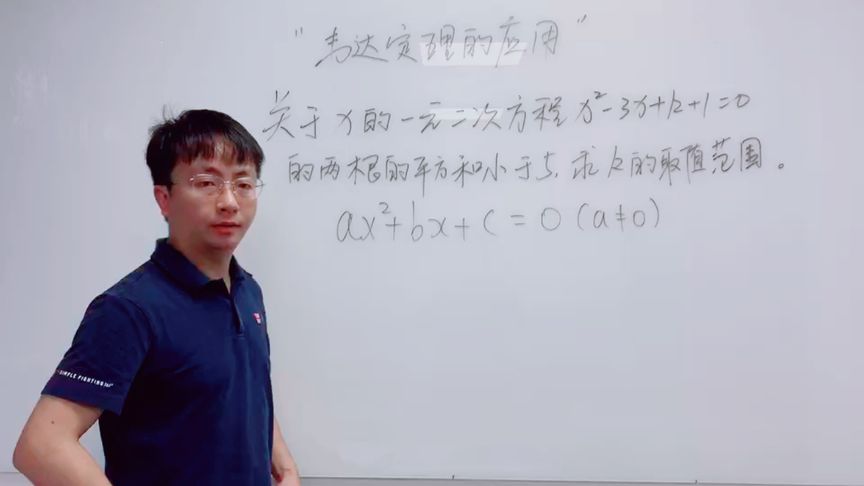 "韦达定理的应用"
关于x的一元二次方程x²-3x+k+1=0
的两根的平方和小于5,求k的取值范围。
ax²+bx+c=0(a≠0)
SIMPLE FIGHTING